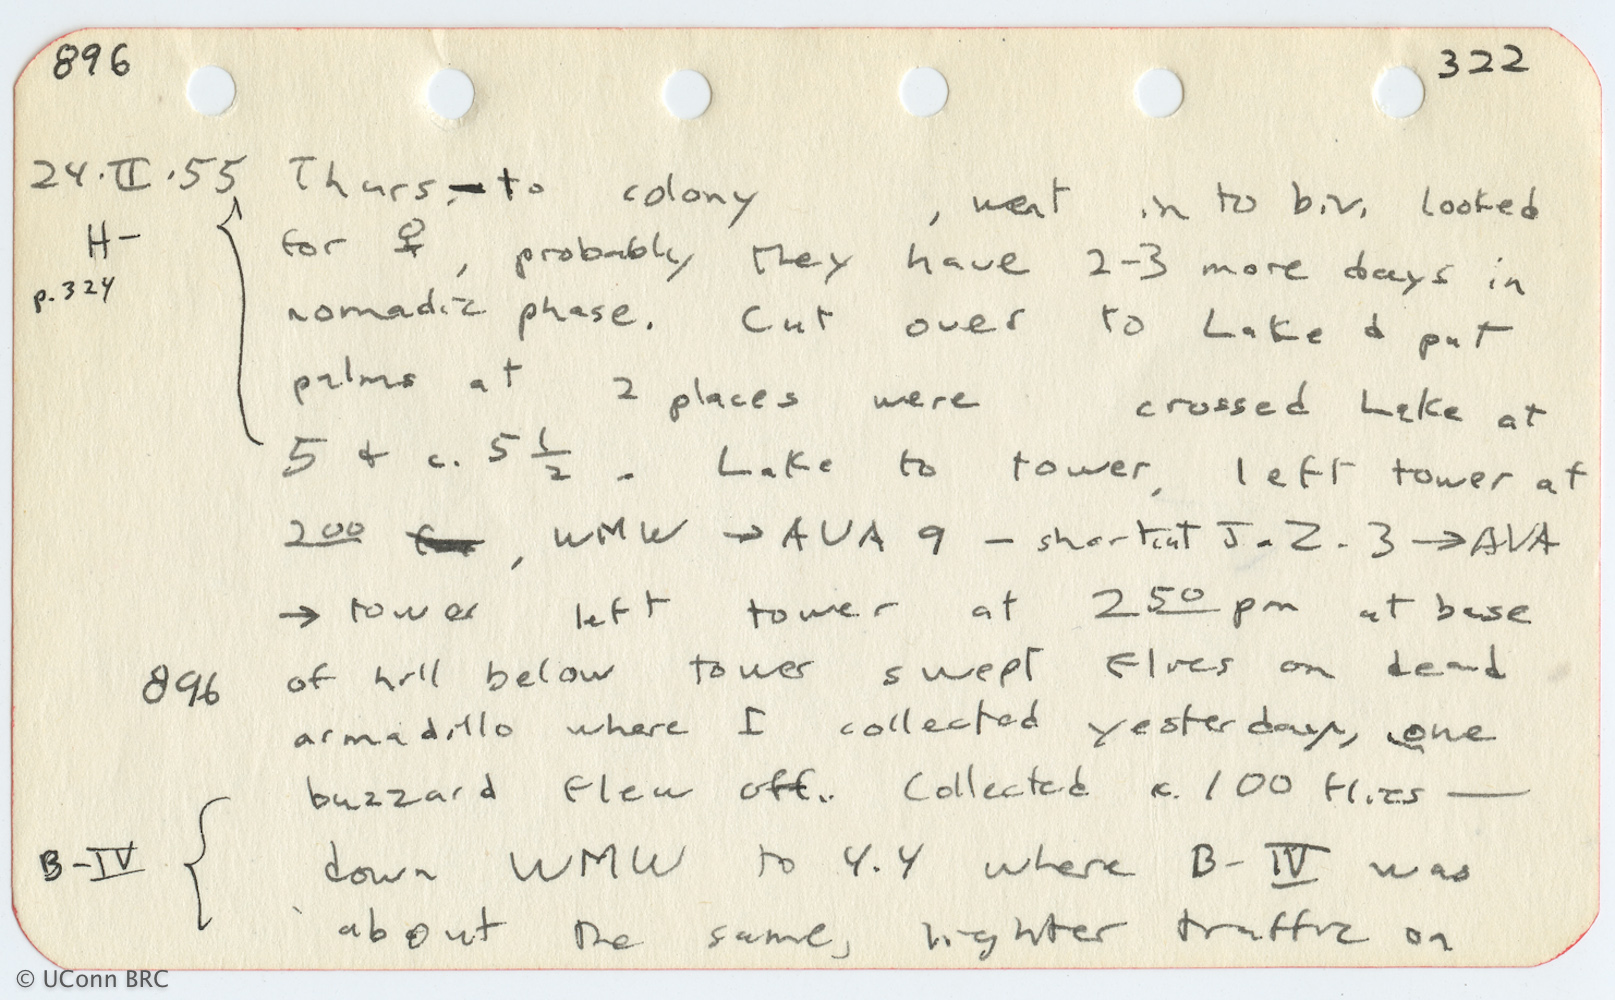 896 322
24·II·55 Thurs. – to colony , went in to biv. looked
H– for ♀, probably they have 2-3 more days in
p.324 nomadic phase. Cut over to Lake & put
palms at 2 places were crossed Lake at
5 & c. 5 1/2. Lake to tower, left tower at
200 , WMW → AVA 9 – shortcut J.Z.3 → AVA
→ tower left tower at 250 pm at base
896 of hill below tower swept flies on dead
armadillo where I collected yesterday, one
buzzard flew off. Collected c. 100 flies —
B-IV down WMW to 4.4 where B-IV was
about the same, lighter traffic on
© UConn BRC